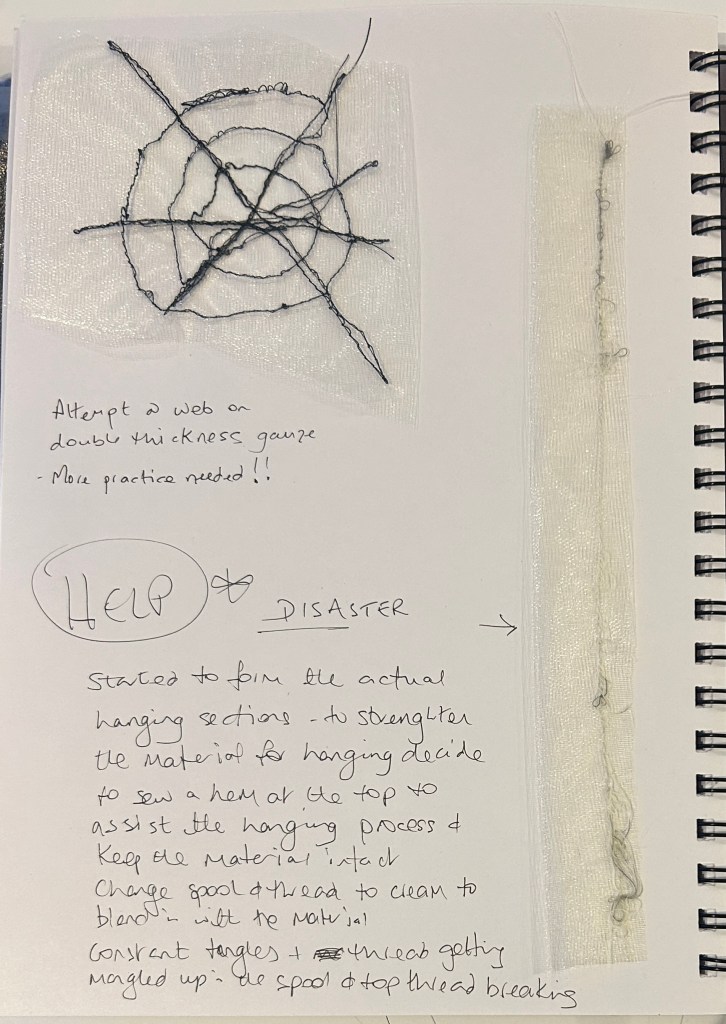 Attempt a web on
double thickness gauze
- More practice needed!!
HELP * DISASTER →
Started to form the actual
hanging sections - to strenghten
the material for hanging decide
to sew a hem at the top to
assist the hanging process &
keep the material intact
Change spool & thread to cream to
blend in with the material
Constant tangles + thread getting
mangled up in the spool & top thread breaking